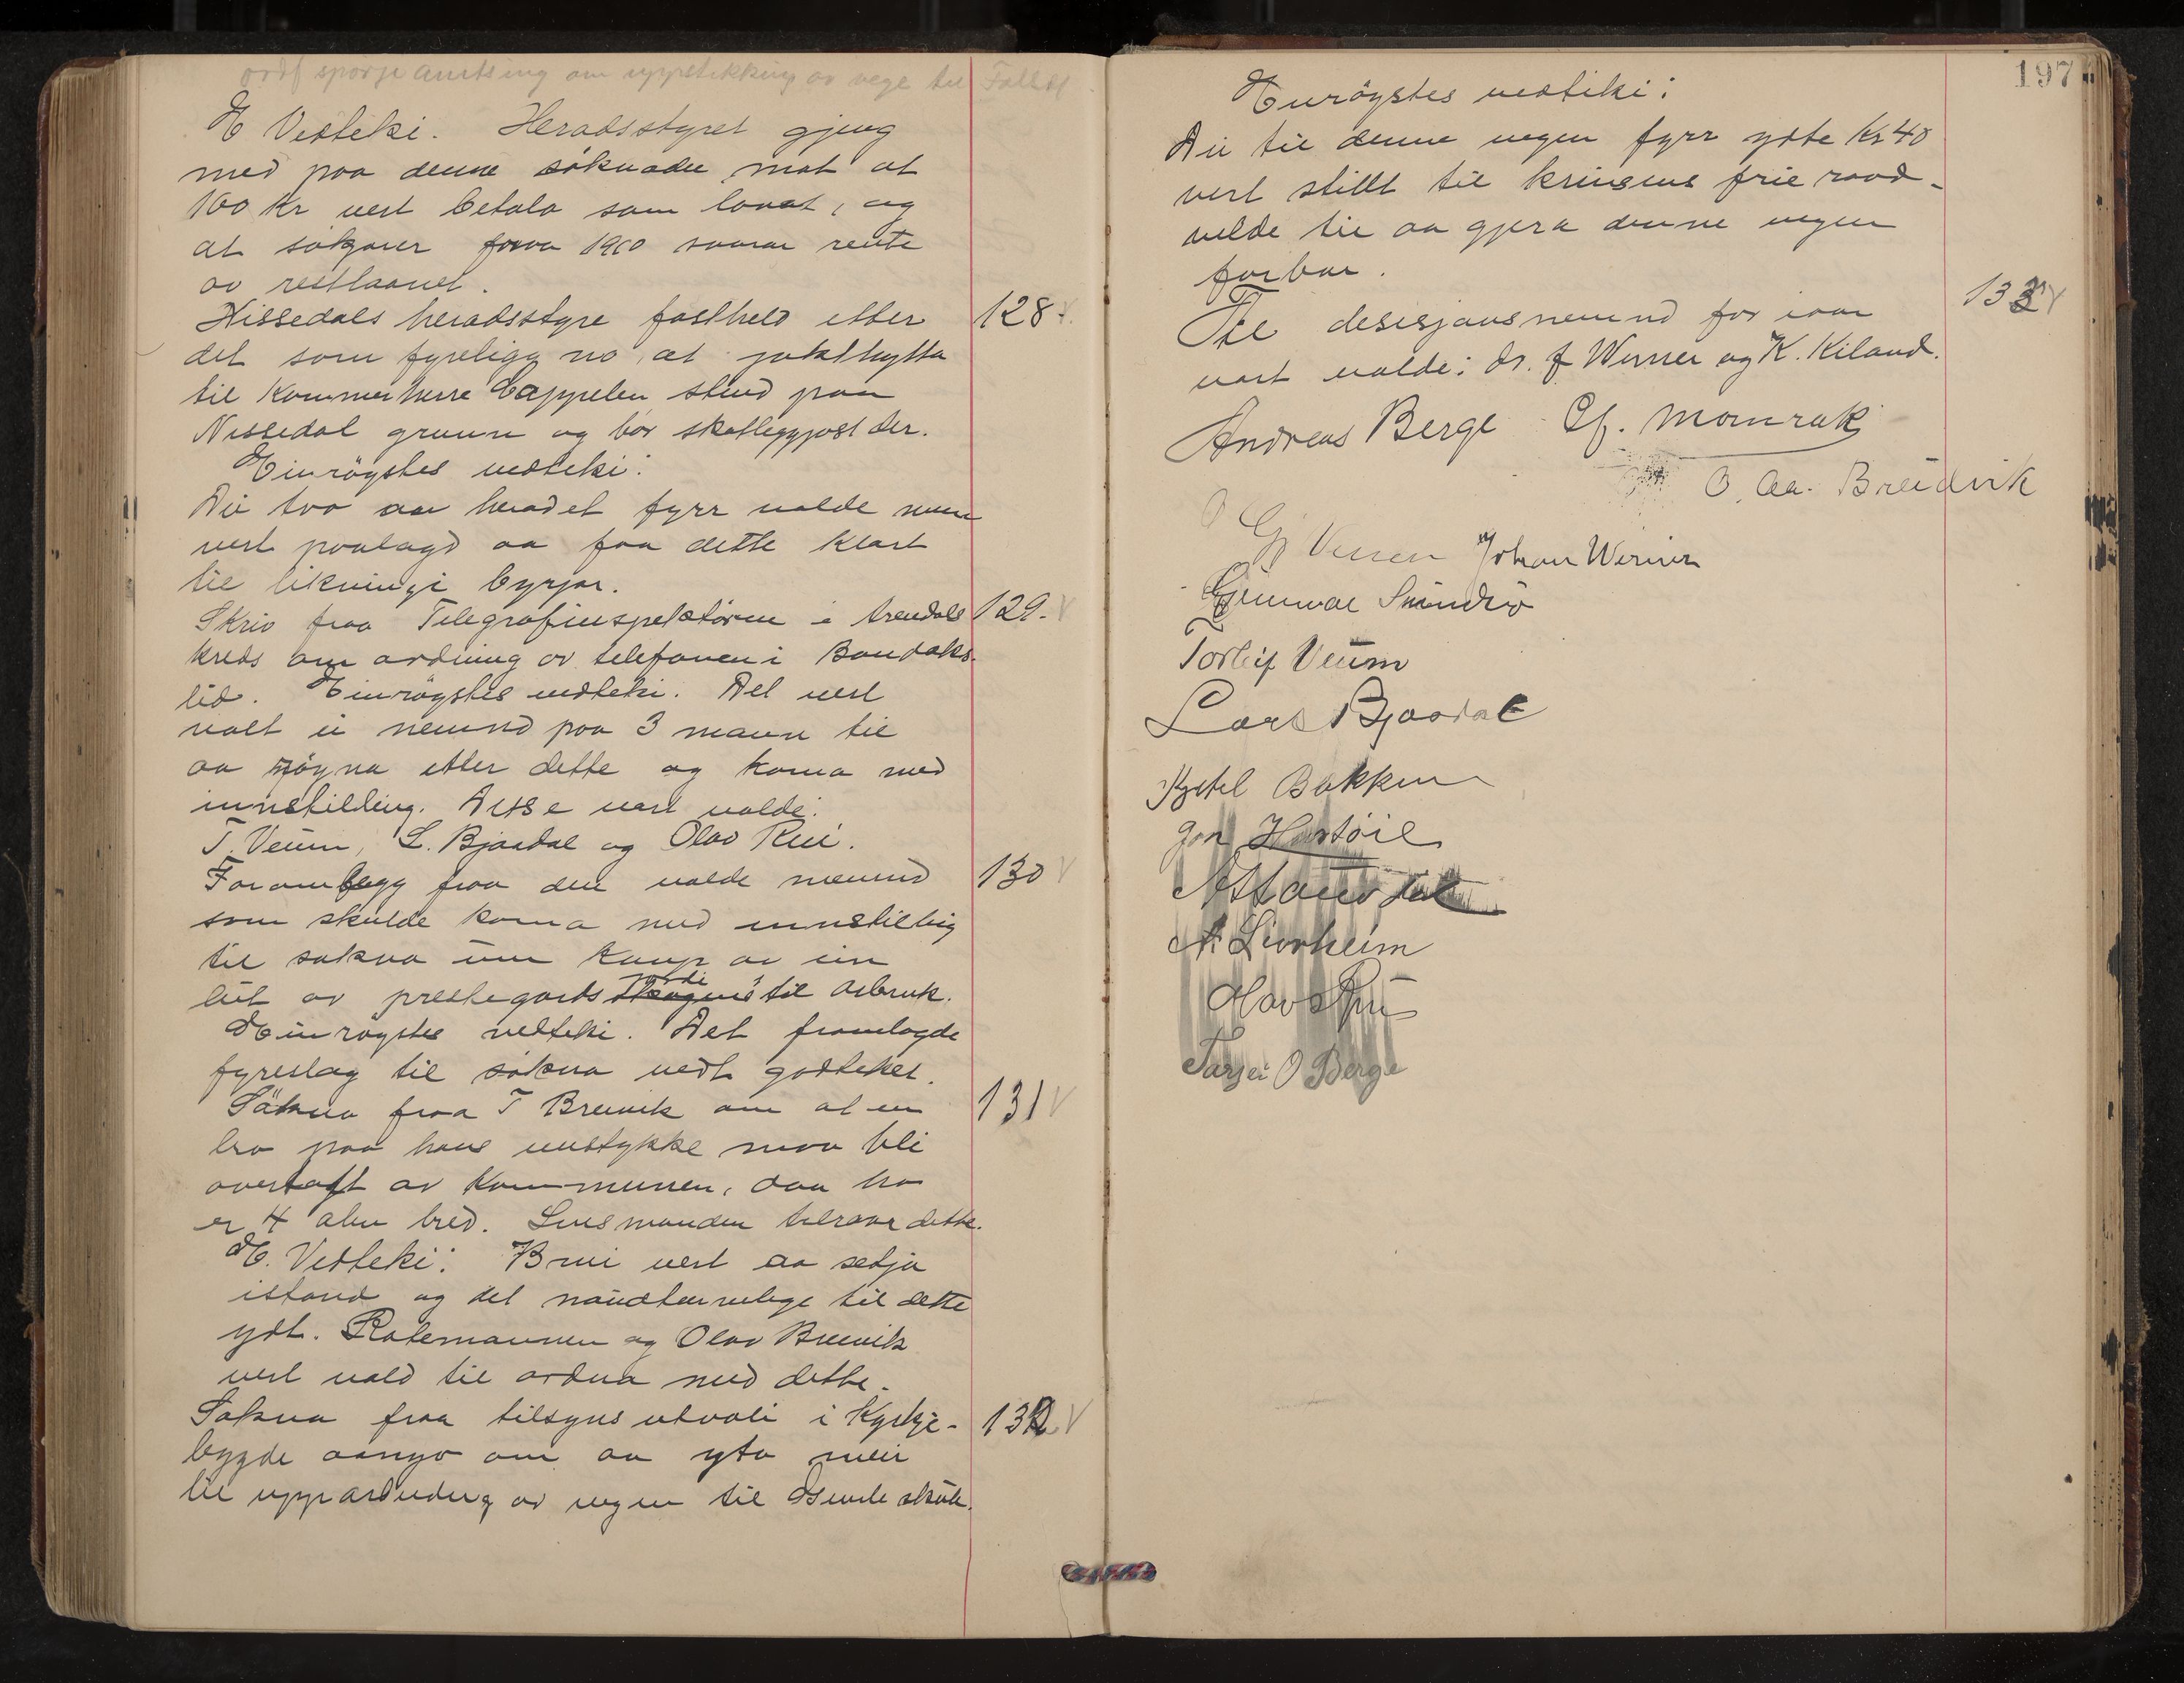 ordf spørje amtsing om uppstikking av vege til
E Vedteki. Heradsstyret gjeng
med paa denne söknaden mot at
100 Kr vert betala som lovat, og
at søkjarer fraa 1910 svarar rente
av restlaanet.
Nissedals heradsstyre fastheld etter 128.
det som fyreligg no, at jakthytta
til Kammerherre Cappelen stend paa
Nissedal grunn og bör skatleggjast der.
Einröystes vedteki:
Dei tvo aa heradet fyrr valde menn
vert paalagd aa faa dette klart
til likningi byrjar.
Skriv fraa Telegrafinspektören i Arendals 129. V
kreds om ordning av telefonen i Bandaks-
lid. Einröystes vedteki. Det vert
valt ei nemnd paa 3 mann til
aa röyna etter dette og koma med
innstilling. Disse vart valde:
T. Veum, L. Bjaadal og Olav Rui.
Foramlegg fraa den valde nemnd 130 V
som skulde koma med innstilling
til sakna um kaup av ein
lut av prestegards jordi til arbruk.
Einröystes vedteki. Det framlagde
fyreslag til søkna vedt godteket.
Søkna fraa T Breivik om at en 131 V
bro paa hans veistykke maa bli
overtatt av Kommunen, daa ho
er 4 alen bred. Lensmanden tilraar dette.
E. Vedteki: Brui vert aa setja
istand og det naudturvelege til dette
ydt. Rotemannen og Olav Breivik
vert vald til ordna med dette.
Søkna fraa tilsyns utvali i Kyrkje- 132 V
bygde aango om aa yta meir
til upparbeiding av vegen til skule.
197
Einröystes vedteki:
Dei til denne vegen fyrr ydte Kr 40
vert stillt til krinsens frie raad-
velde til aa gjera denne vegen
farbar.
Til desisjonsnemnd for iaar 133 V
vart valde: Dr. J Werner og K. Kiland.
Andreas Berge Ef. Momrak
O. Aa. Breidvik
Gj Veum Johan Werner
Gunnar
Torleif Veum
Lars Bjaadal
Kjetil Bakken
Jon Haatöil
A. Livrheim
Olav Rui
Tarjei O Berge